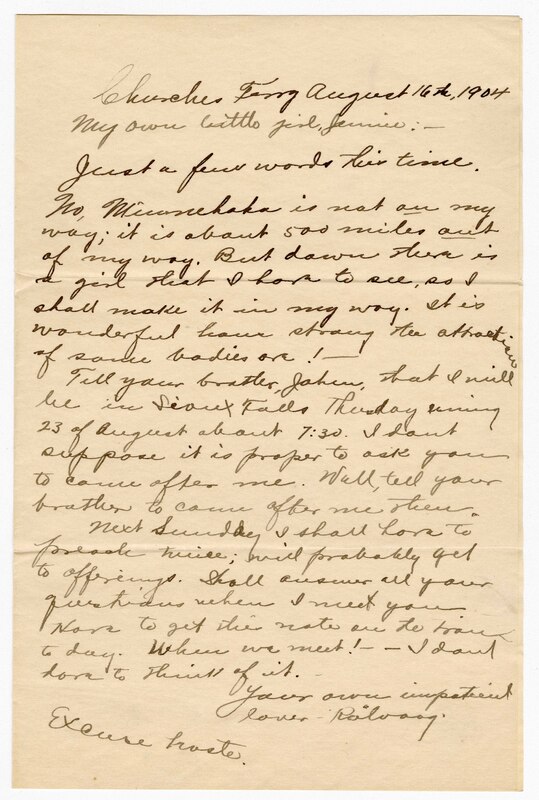 Churches Ferry August 16th, 1904
My own little girl, Jennie: —
Just a few words this time.
No, Minnehaha is not on my
way; it is about 500 miles out
of my way. But down there is
a girl that I have to see, so I
shall make it in my way. It is
wonderful how strong the attraction
of some bodies are! —
Tell your brother, John, that I will
be in Sioux Falls Thusday evning
23 of August about 7:30. I dont
suppose it is proper to ask you
to come after me. Well, tell your
brother to come after me then.
Next Sunday I shall have to
preach twice; will probably get
to offerings. Shall answer all your
questions when I meet you
Have to get this note on the train
to day. When we meet! — — I dont
dare to think of it.
Your own impatient
lover — Rölvaag.
Excuse haste.